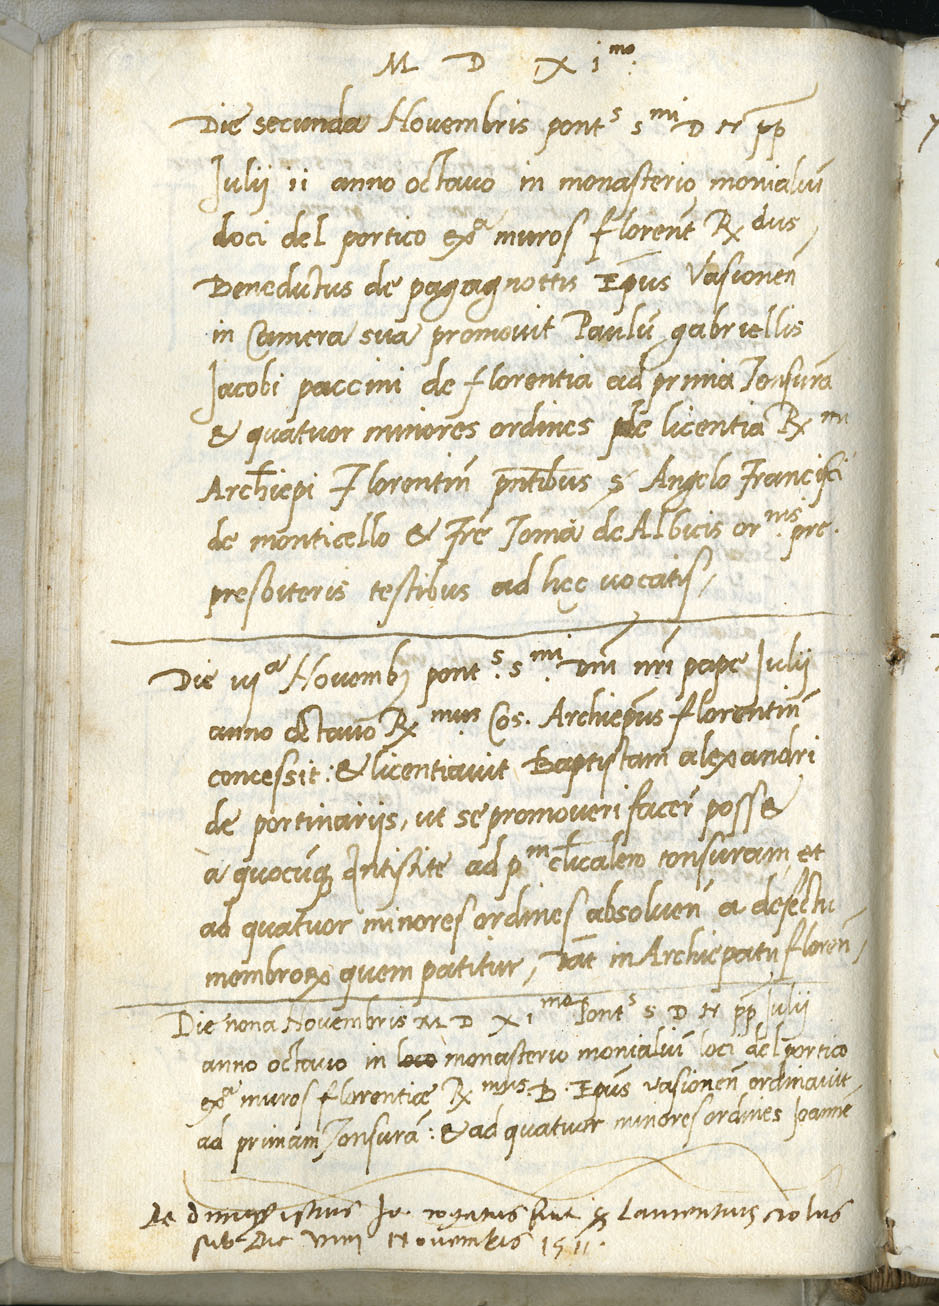 M D XI mo.
Die secunda Novembris pont s s mi D N pp
Julii ii anno octavo in monasterio monialiū
loci del portico ex a muros florent̄ Rx dus
Benedictus de pagagnottis Ep̄us Vasionen̄
in Camera sua promovit Paulū gabriellis
Jacobi paccini de florentia ad primā Tonsurā
& quatuor minores ordines de licentia Rx mi
Archiep̄i Florentin̄ pn̄tibus s Angelo Francisci
de monticello & Fre Toma de Albicis or. ms pre.
presbiteris testibus ad hec vocatis,
Die vij a Novemb pont. s s. mi Dn̄i nr̄i pape Julii
anno octavo Rx mus Cos. Archiep̄us florentin̄
concessit: & licentiavit Baptistam alexandri
de portinarijs, ut se promoveri facer̄ posset
a quocūq Antistite ad p m cl̄icalem tonsuram, et
ad quatuor minores ordines absolven̄ a defectu
membrorx quem patitur, Dat̄ in Archiep̄atu floren̄,
Die nona Novembris M D XI mo Pont s s D N pp Julii
anno octavo in loco monasterio monialiū loci del portico
ex a muros florentiæ Rx mus. B. Ep̄us Vasionen̄ ordinavit
ad primam Tonsurā: & ad quatuor minores ordines Joannē
rogatus fuit s Laurentius
sub Die viiii Novembris 1511.